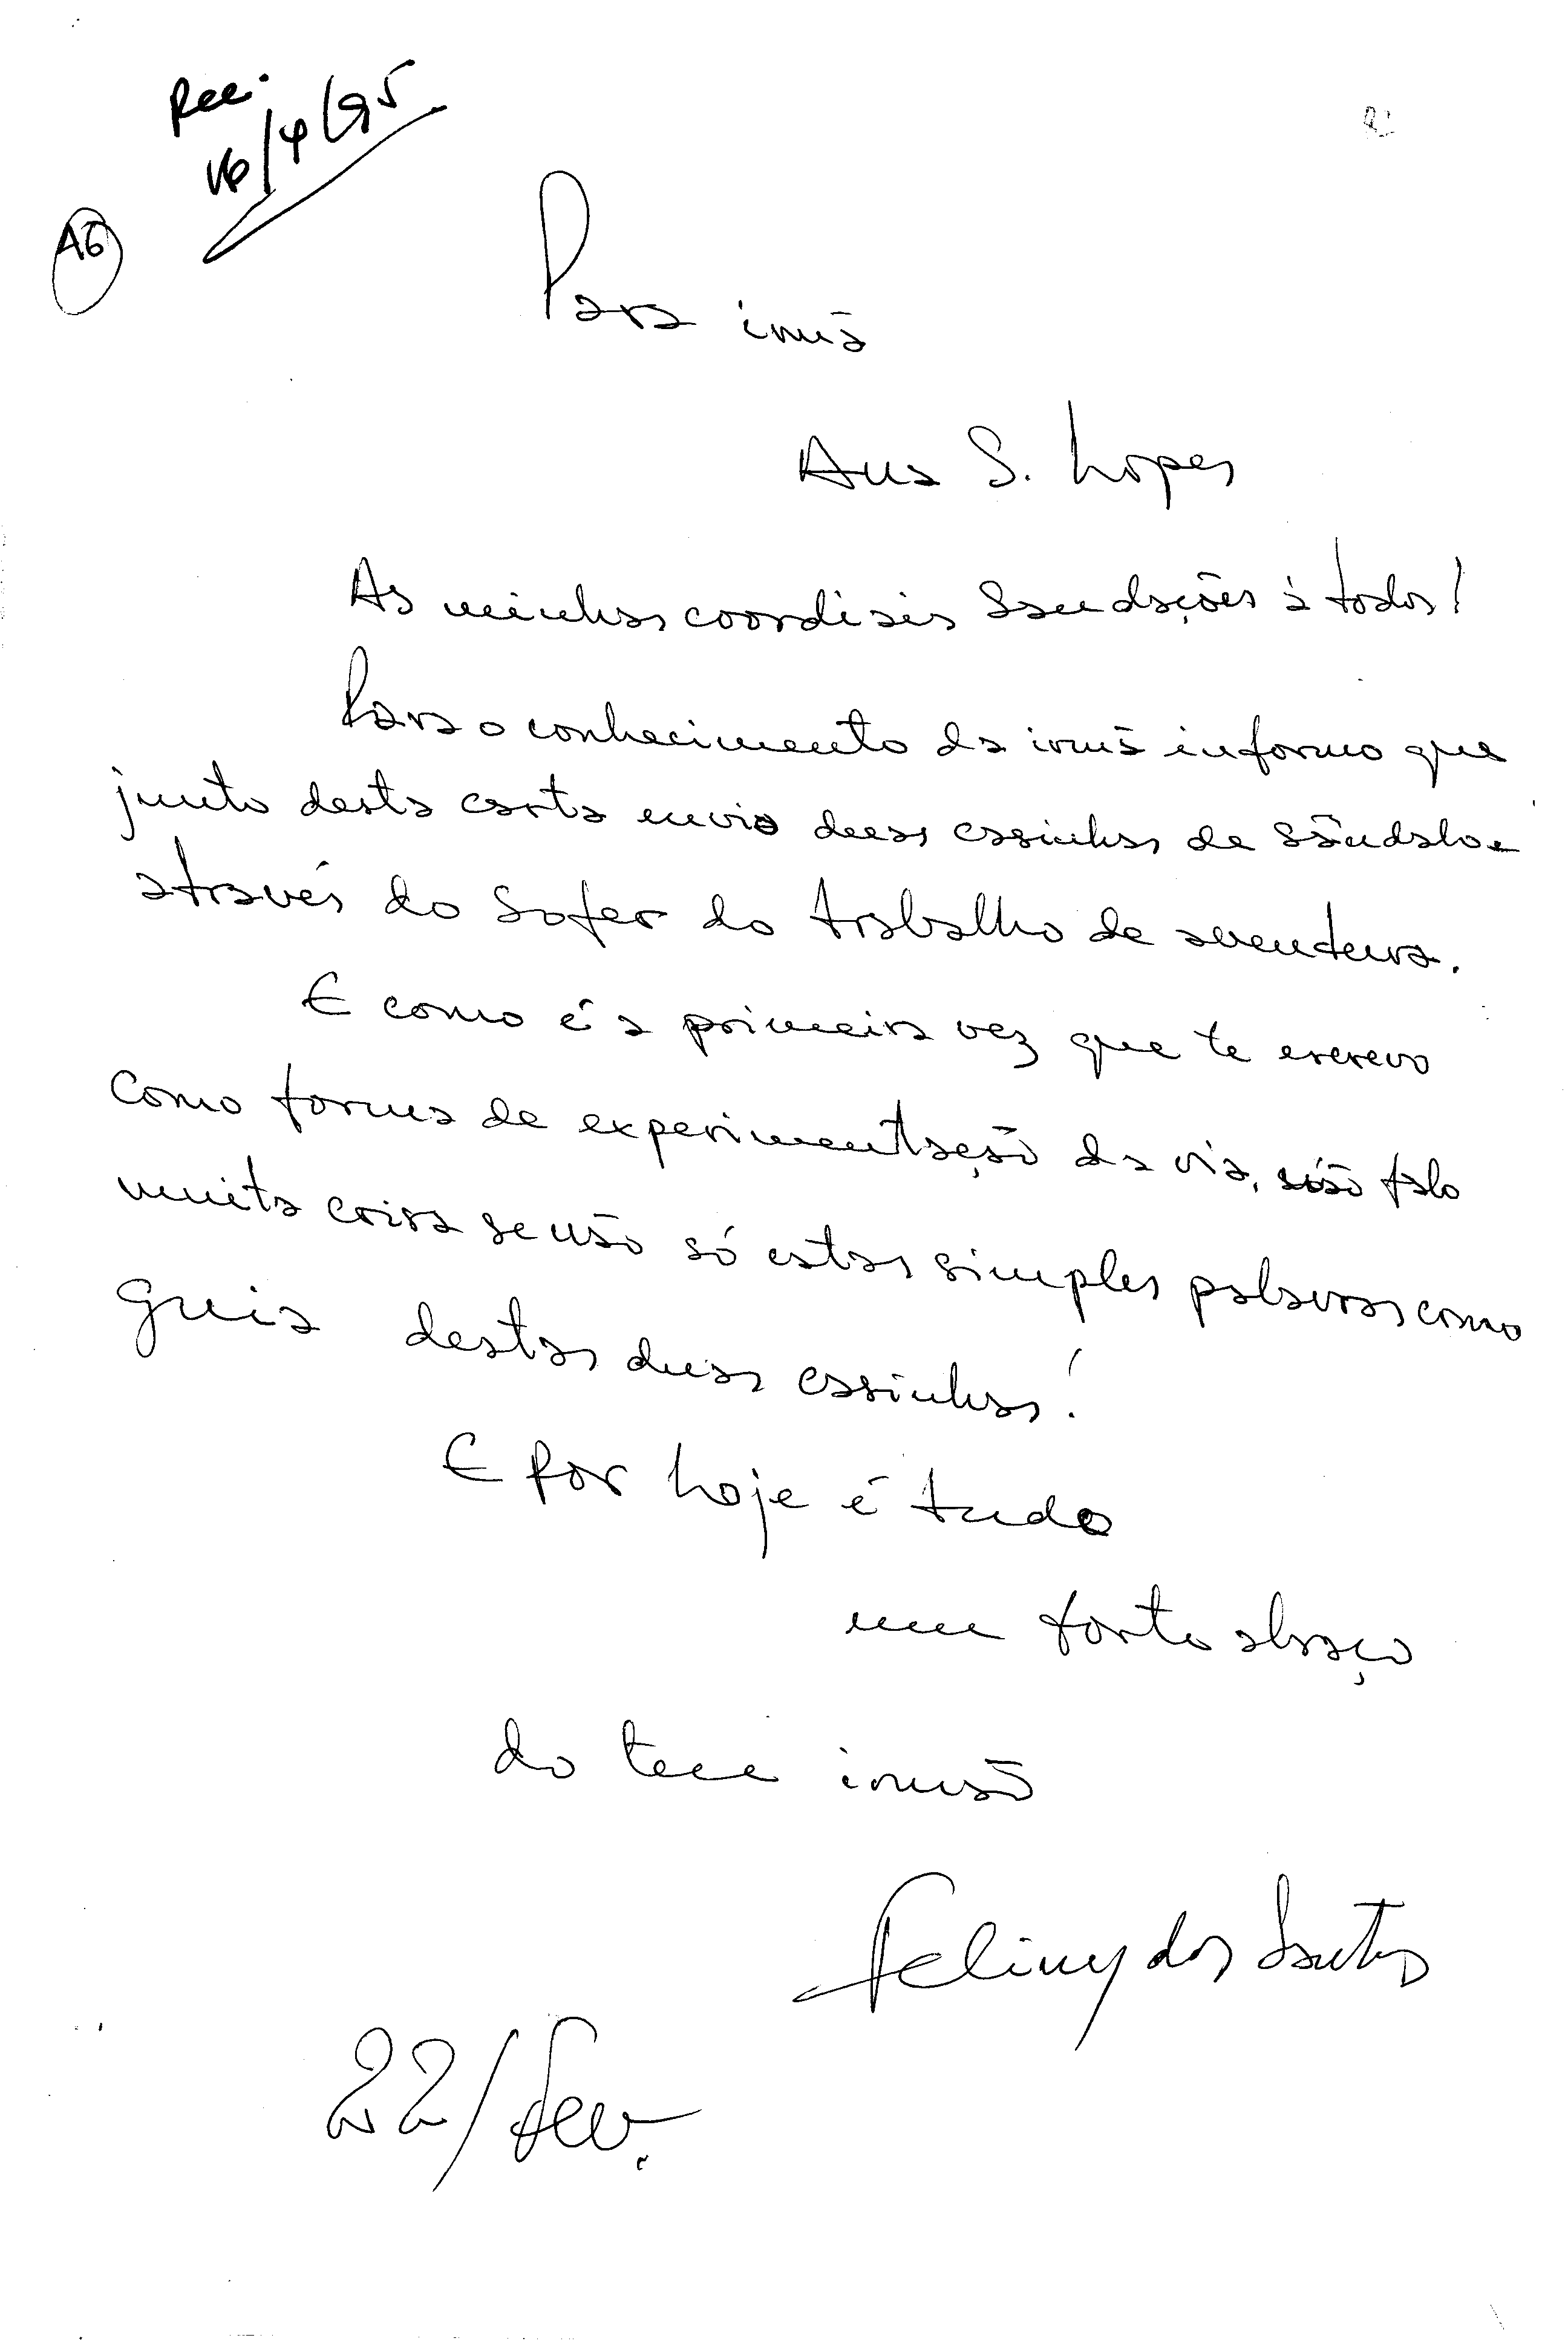 Rec.
16/4/95
A6
Para irmã
Ana S. Lopes
As minhas coordiais Saudações à todos!
Para o conhecimento da irmã informo que
junto desta carta envio duas casinhas de Sândalo
através do Sofer do trabalho de aventura.
E como é a primeira vez que te escrevo
como forma de experimentação da via, não falo
muita coisa senão só estas simples palavras como
guia destas duas casinhas!
E por hoje é tudo
um forte abraço
do teu irmão
Felimy dos Santos
22/Fev.